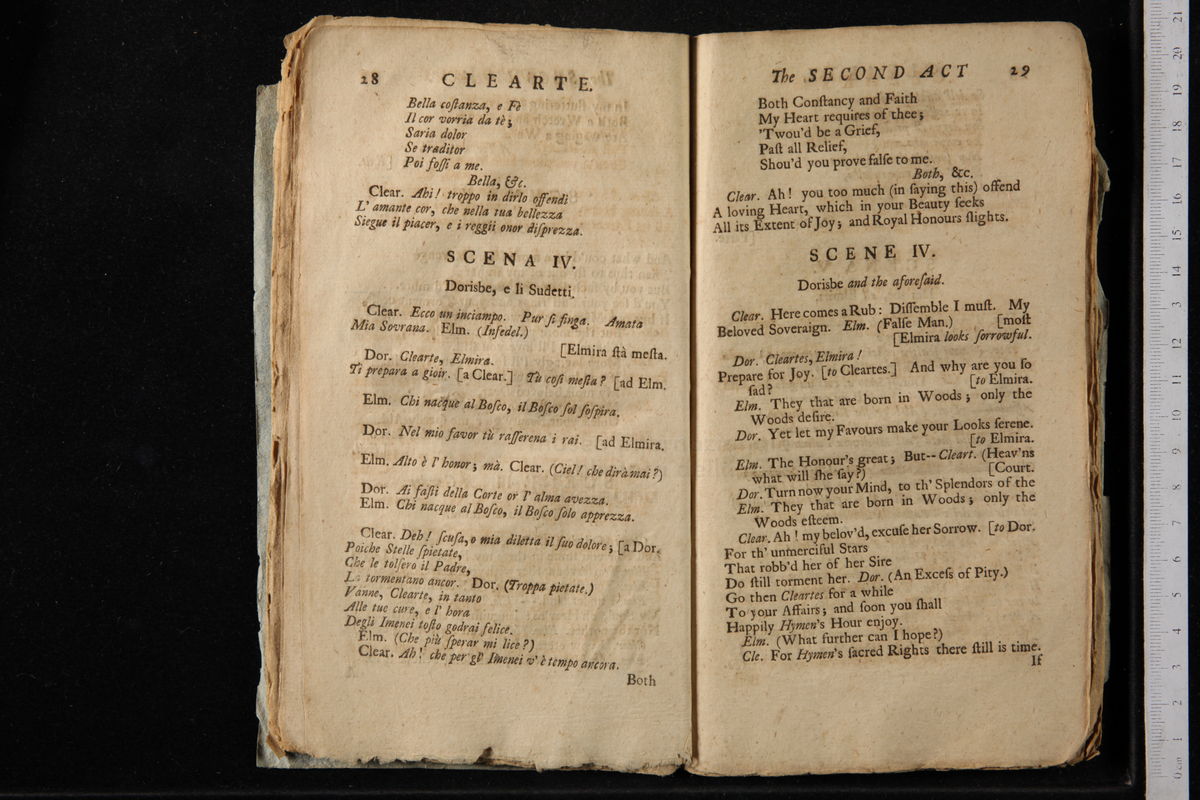 28 CLEARTE.
Bella coſtanza, e Fè
Il cor vorria da tè;
Saria dolor
Se traditor
Poi foſſi a me.
Bella, &c.
Clear. Ahi! troppo in dirlo offendi
L' amante cor, che nella tua bellezza
Siegue il piacer, e i reggii onor diſprezza.
SCENA IV.
Dorisbe, e li Sudetti.
Clear. Ecco un inciampo. Pur ſi finga. Amata
Mia Sovrana. Elm. (Infedel.)
[Elmira ſtà meſta.
Dor. Clearte, Elmira.
Ti prepara a gioir. [a Clear.] Tù coſi meſta? [ad Elm.
Elm. Chi nacque al Boſco, il Boſco ſol ſoſpira.
Dor. Nel mio favor tù raſſerena i rai. [ad Elmira.
Elm. Alto è l' honor; mà. Clear. (Ciel! che dirà mai?)
Dor. Ai faſti della Corte or l' alma avezza.
Elm. Chi nacque al Boſco, il Boſco ſolo apprezza.
Clear. Deh! ſcuſa, o mia diletta il ſuo dolore; [a Dor.
Poiche Stelle ſpietate,
Che le tolſero il Padre,
La tormentano ancor. Dor. (Troppa pietate.)
Vanne, Clearte, in tanto
Alle tue cure, e l' hora
Degli Imenei toſto godrai felice.
Elm. (Che più ſperar mi lice?)
Clear. Ah! che per gl' Imenei v' è tempo ancora.
Both
The SECOND ACT 29
Both Conſtancy and Faith
My Heart requires of thee;
'Twou'd be a Grief,
Paſt all Relief,
Shou'd you prove falſe to me.
Both, &c.
Clear. Ah! you too much (in ſaying this) offend
A loving Heart, which in your Beauty ſeeks
All its Extent of Joy; and Royal Honours ſlights.
SCENE IV.
Dorisbe and the aforeſaid.
Clear. Here comes a Rub: Diſſemble I muſt. My
Beloved Soveraign. Elm. (Falſe Man.) [moſt
[Elmira looks ſorrowful.
Dor. Cleartes, Elmira!
Prepare for Joy. [to Cleartes.] And why are you ſo
ſad? [to Elmira.
Elm. They that are born in Woods; only the
Woods deſire.
Dor. Yet let my Favours make your Looks ſerene.
[to Elmira.
Elm. The Honour's great; But-- Cleart. (Heav'ns
what will ſhe ſay?) [Court.
Dor. Turn now your Mind, to th' Splendors of the
Elm. They that are born in Woods; only the
Woods eſteem.
Clear. Ah! my belov'd, excuſe her Sorrow. [to Dor.
For th' unmerciful Stars
That robb'd her of her Sire
Do ſtill torment her. Dor. (An Exceſs of Pity.)
Go then Cleartes for a while
To your Affairs; and ſoon you ſhall
Happily Hymen's Hour enjoy.
Elm. (What further can I hope?)
Cle. For Hymen's ſacred Rights there ſtill is time.
If
0 cm 1 2 3 4 5 6 7 8 9 10 11 12 13 14 15 16 17 18 19 20 21